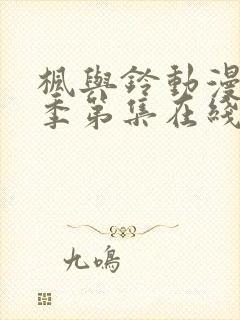 楓與鈴動漫
季第集在綫
九鳴